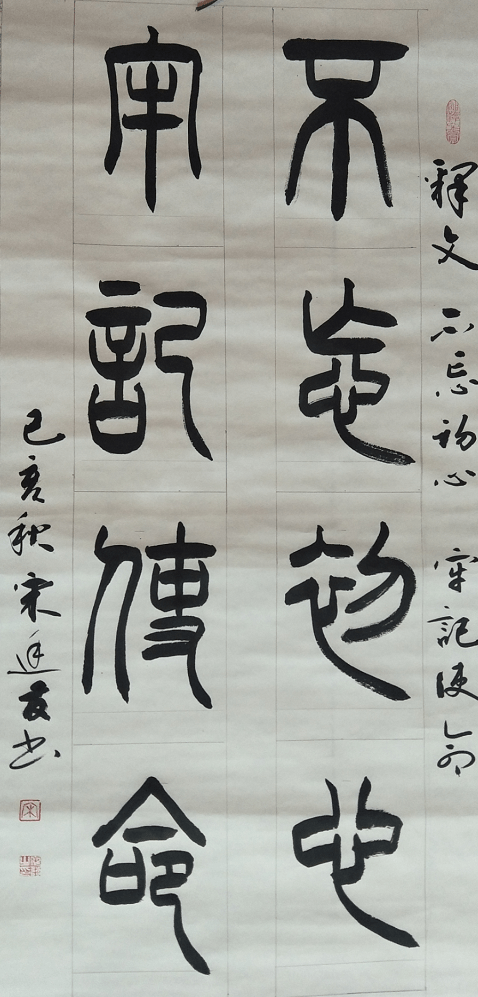 釋文 不忘初心 牢記使命
不忘初心
牢記使命
己亥秋宋友书
宋